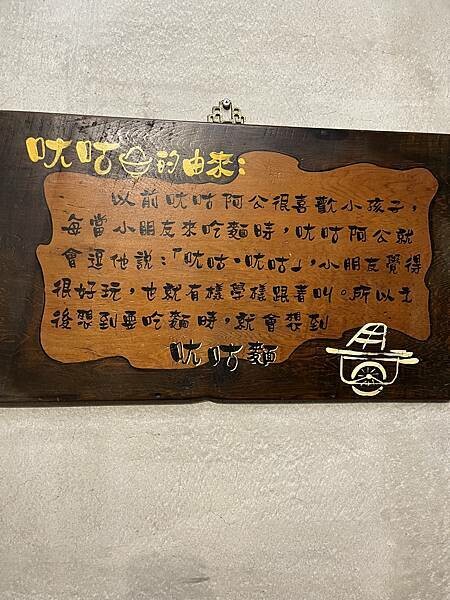 吠咕的由來：
以前吠咕阿公很喜歡小孩子，
每當小朋友來吃麵時，吠咕阿公就
會逗他說：「吠咕、吠咕」，小朋友覺得
很好玩，也就有樣學樣跟著叫。所以之
後想到要吃麵時，就會想到
吠咕麵